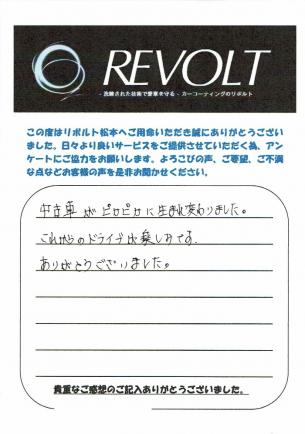 REVOLT
- 洗練された技術で愛車を守る - カーコーティングのリボルト
この度はリボルト松本へご用命いただき誠にありがとうござい
ました。日々より良いサービスをご提供させていただく為、アン
ケートにご協力をお願いします。よろこびの声、ご要望、ご不満
な点などお客様の声を是非お聞かせください。
中古車がピカピカに生まれ変わりました。
これからのドライブが楽しみです。
ありがとうございました。
貴重なご感想のご記入ありがとうございました。